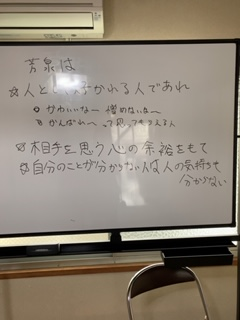 芳泉は
☆人として好かれる人であれ
○かわいいな〜 憎めないな〜
○がんばれ〜 って思ってもらえる人
☆相手を思う心の余裕をもて
☆自分のことが分からない人は人の気持ちも
分からない